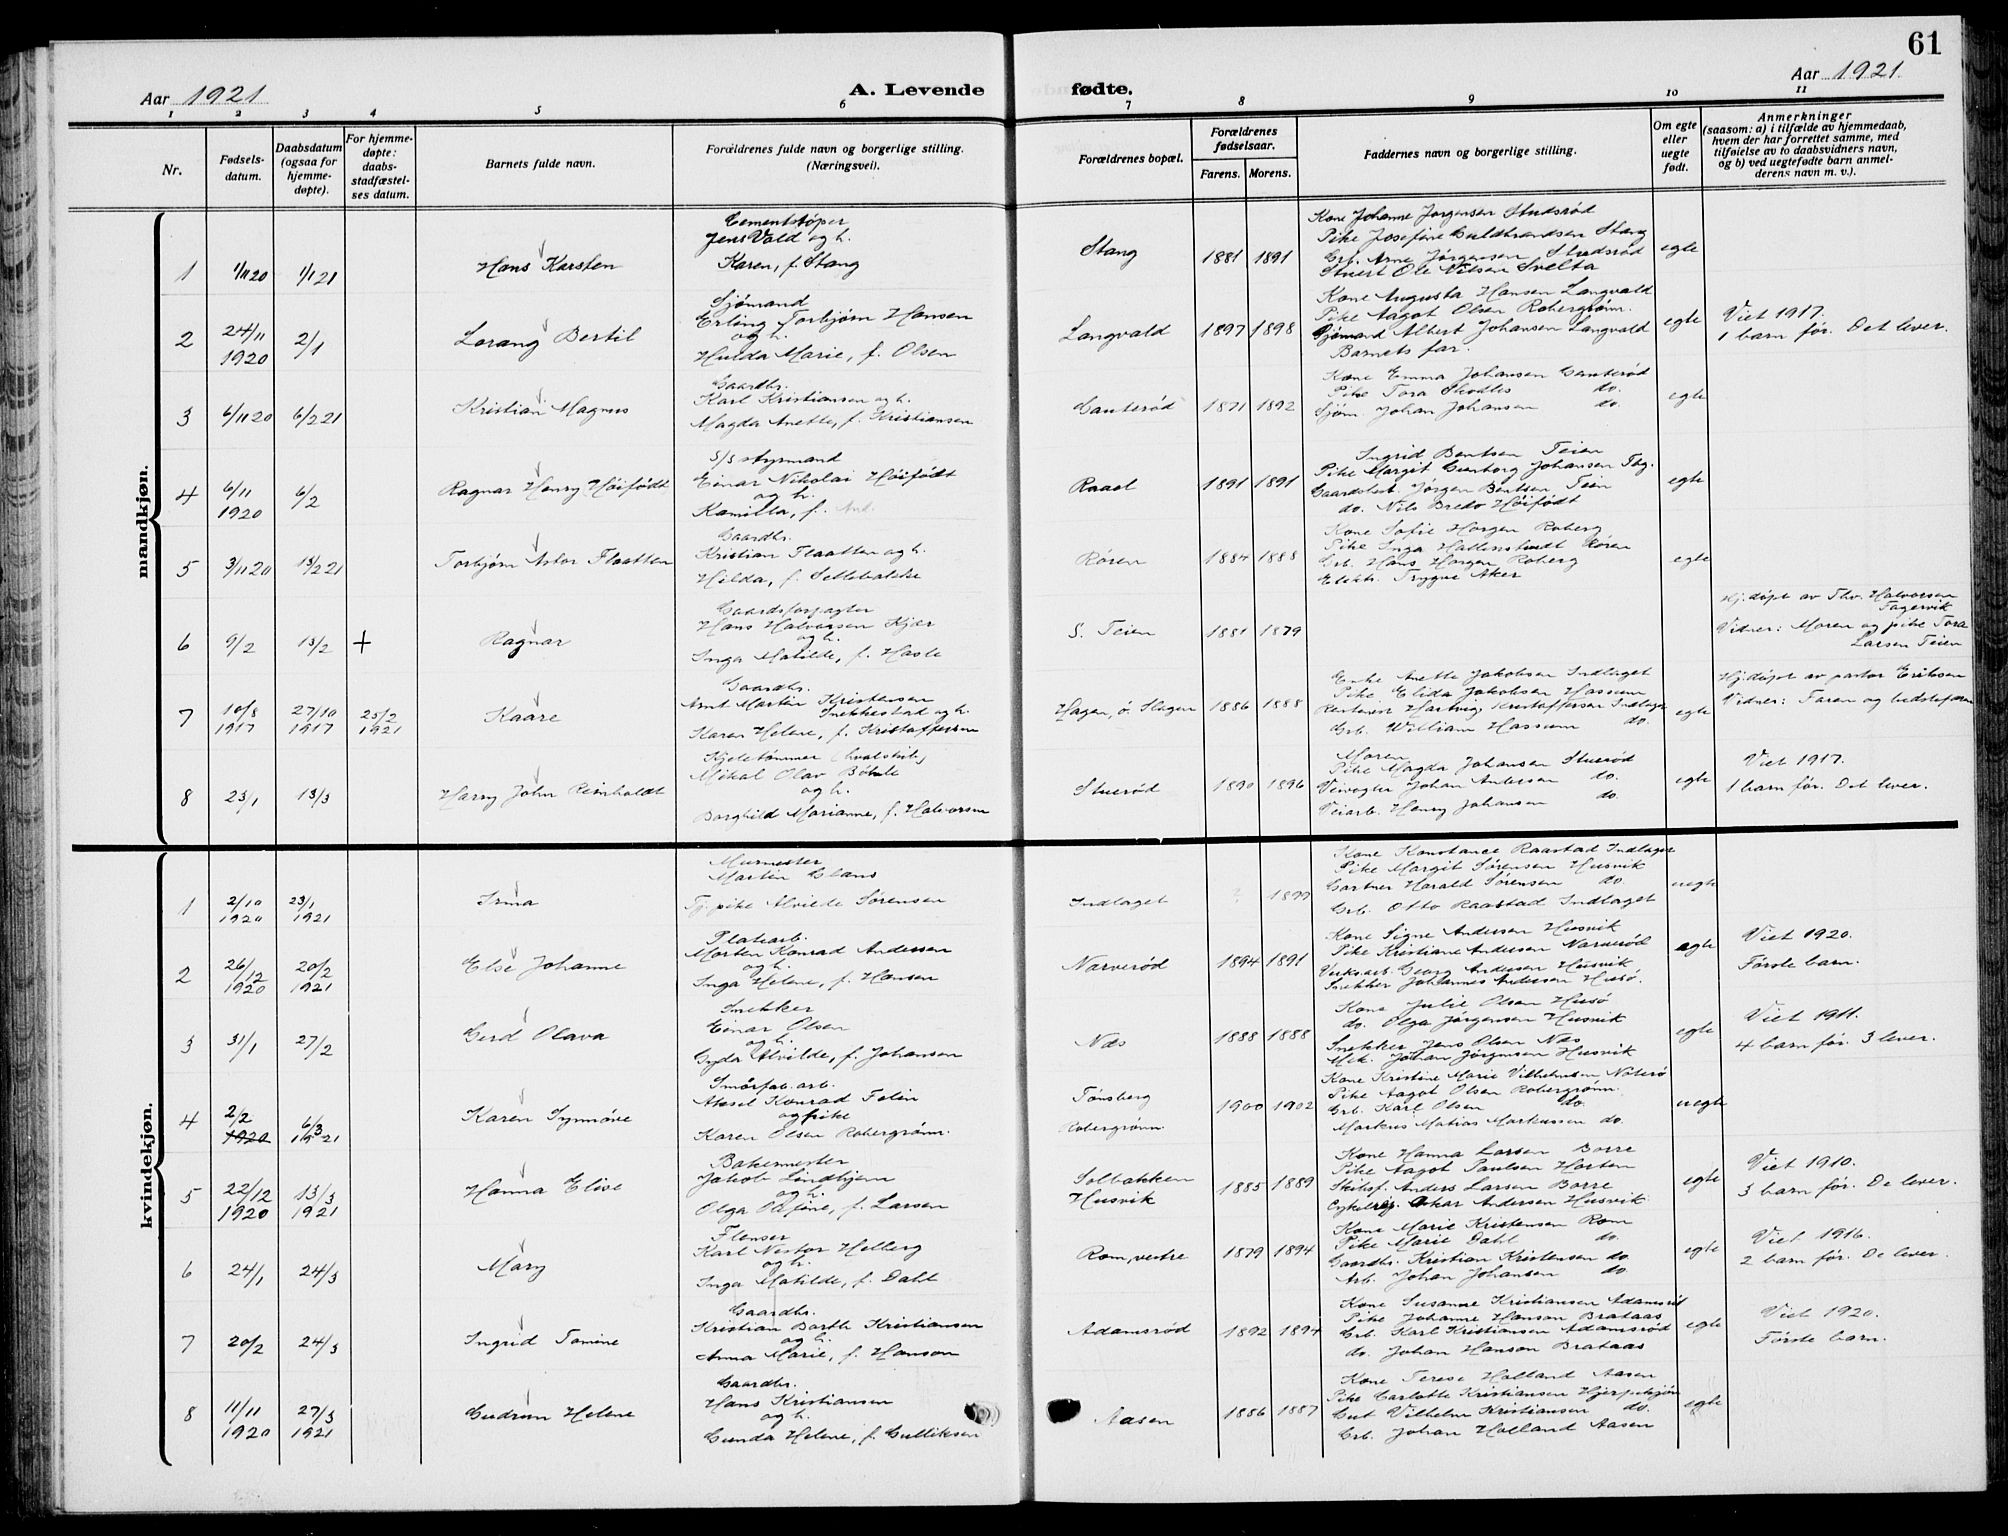 61
Aar 1921
A. Levende fødte.
Aar 1921.
1 2 3 4 5 6 7 8 9 10 11
Nr.
Fødsels-
datum.
Daabsdatum
(ogsaa for
hjemme-
døpte).
For hjemme-
døpte:
daabs-
stadfæstel-
ses datum.
Barnets fulde navn.
Forældrenes fulde navn og borgerlige stilling.
(Næringsvei).
Forældrenes bopæl.
Forældrenes
fødselsaar.
Farens. Morens.
Faddernes navn og borgerlige stilling.
Om egte
eller
uegte
født.
Anmerkninger
(saasom: a) i tilfælde av hjemmedaab,
hvem der har forrettet samme, med
tilføielse av to daabsvidners navn,
og b) ved uegtefødte barn anmel-
derens navn m. v.).
mandkjøn.
1 1/11 20 1/1 21
Hans Karsten
Cementstøper
Jens Vold og h.
Karen, f. Stang
Stang 1881 1891
Kone Johanne Jørgensen Studsrød
Pike Josefine Guldbrandsen Stang
Grb. Arne Jørgensen Studsrød
Stuert Ole Nilsen Svelta
egte
2 24/11 1920 2/1
Lorang Bertil
Sjømand
Erling Torbjørn Hansen
og h.
Hulda Marie, f. Olsen
Langvald 1897 1898
Kone Augusta Hansen Langvald
Pike Aagot Olsen Robergrønn.
Sjømand Albert Johansen Langvald
Barnets far.
egte
Viet 1917.
1 barn før. Det lever.
3 6/11 20 6/2 21
Kristian Magnus
Gaardbr.
Karl Kristiansen og h.
Magda Anette, f. Kristiansen
Gauterød 1871 1892
Kone Emma Johansen Gauterød
Pike Tora do.
Sjøm. Johan Johansen do.
egte
4 6/11 1920 6/2
Ragnar Henry Høifødt
S/S styrmand
Einar Nikolai Høifødt
og h.
Kamilla, f.
Raael 1891 1891
Ingrid Bentsen Teien
Pike Margit Johansen Tbg.
Gaardbest. Jørgen Bentsen Teien
do. Nils Bredo Høifødt
egte
5 3/11 20 13/2 21
Torbjørn Astor Flaatten
Gaardbr.
Kristian Flaatten og h.
Hilda, f. Settebakke
Røren 1884 1888
Kone Sofie Horgen Roberg
Pike Inga Hallenstvedt Røren
Grb. Hans Horgen Roberg
Elektr. Trygve Aker
egte
6 9/2 13/2 +
Ragnar
Gaardsforpagter
Hans Halvorsen Kjær
og h.
Inga Matilde, f. Hasle
S. Teien 1881 1879
Hj.døpt av Thv. Halvorsen
Fagervik
Vidner: Moren og pike Tora
Larsen Teien
7 10/8 1917 27/10 1917 25/2 1921
Kaare
Gaardbr.
Arnt Martin Kristensen
Snekkestad og h.
Karen Helene, f. Kristoffersen
Hagen, ø. Slagen 1886 1888
Enke Anette Jakobsen Indlaget
Pike Elida Jakobsen Hassum
Rentenist Hartvig Kristoffersen Indlaget
Grb. William Hassum do.
egte
Hj.døpt av pastor Eriksen
Vidner: Faren og bedstefaren
8 23/1 13/3
Harry John Reinholdt
Kjeletømmer (hvalstat.)
Mikal Olav Bøhle
og h.
Borghild Marianne, f. Halvorsen
Stuerød 1890 1896
Moren
Pike Magda Johansen Stuerød
Veivogter Johan Andersen do.
Veiarb. Henry Johansen do.
egte
Viet 1917.
1 barn før. Det lever.
kvindekjøn.
1 2/10 1920 23/1 1921
Irma
Murmester
Martin Claus
Tj.pike Alvilde Sørensen
Indlaget ? 1899
Kone Konstance Raastad Indlaget
Pike Margit Sørensen Husvik
Gartner Harald Sørensen do.
Grb. Otto Raastad Indlaget
uegte
2 26/12 1920 20/2 1921
Else Johanne
Platearb.
Morten Konrad Andersen
og h.
Inga Helene, f. Hansen
Narverød 1894 1891
Kone Signe Andersen Husvik
Pike Kristiane Andersen Narverød
Verks.arb. Georg Andersen Husvik
Snekker Johannes Andersen Husø.
egte
Viet 1920.
Første barn.
3 31/1 27/2
Gerd Olava
Snekker
Einar Olsen
og h.
Gyda Alvilde, f. Johansen
Næs 1888 1888
Kone Julie Olsen Husø
do. Olga Jørgensen Husvik
Snekker Jens Olsen Næs
Mek. Johan Jørgensen Husvik
egte
Viet 1911.
4 barn før. 3 lever.
4 2/2 1920 6/3 1921
Karen Synnøve
Smørfab. arb.
Aksel Konrad Folin
og pike
Karen Olsen Robergrønn.
Tønsberg
Robergrønn.
1900 1902
Kone Kristine Marie Vilhelmsen Nøterø
Pike Aagot Olsen Robergrønn.
Grb. Karl Olsen do.
Markus Matias Markussen do.
uegte
5 22/12 1920 13/3 1921
Hanna Elise
Bakermester
Jakob Lindhjem
og h.
Olga Olefine, f. Larsen
Solbakken
Husvik
1885 1889
Kone Hanna Larsen Borre
Pike Aagot Paulsen Horten
Skibsf. Anders Larsen Borre
Cykelrep. Oskar Andersen Husvik
egte
Viet 1910.
3 barn før. De lever.
6 24/1 24/3
Mary
Flenser
Karl Nestor Helberg
og h.
Inga Matilde, f. Dahl
Rom, vestre 1879 1894
Kone Marie Kristensen Rom
Pike Marie Dahl do.
Gaardbr. Kristian Kristensen do.
Arb. Johan Johansen do.
egte
Viet 1916.
2 barn før. De lever.
7 20/2 24/3
Ingrid Tomine
Gaardbr.
Kristian Barth Kristiansen
og h.
Anna Marie, f. Hanson
Adamsrød 1892 1894
Kone Susanne Kristiansen Adamsrød
Pike Johanne Hanson Brataas
Grb. Karl Kristiansen Adamsrød
do. Johan Hanson Brataas
egte
Viet 1920.
Første barn.
8 11/11 1920 27/3 1921
Gudrun Helene
Gaardbr.
Hans Kristiansen
og h.
Gunda Helene, f. Gulliksen
Aasen 1886 1887
Kone Terese Holland Aasen
Pike Carlotte Kristiansen Hjerpekjøn
Gut Vilhelm Kristiansen do.
Grb. Johan Holland Aasen
egte